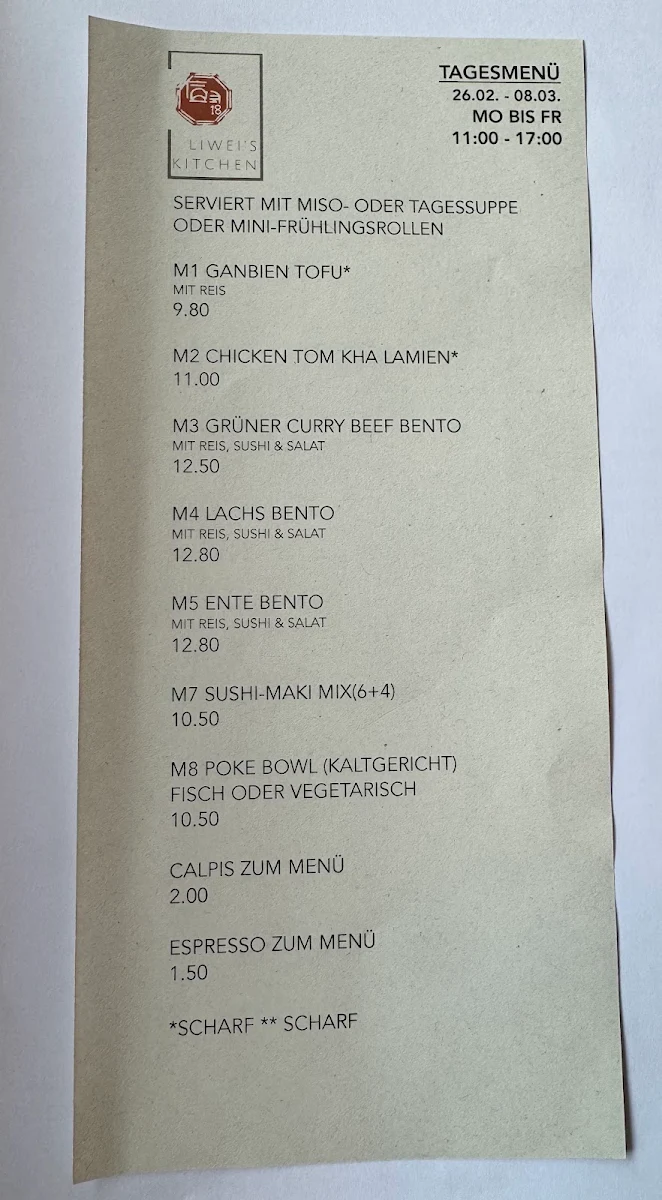 18
LIWEI'S
KITCHEN
TAGESMENÜ
26.02. - 08.03.
MO BIS FR
11:00 - 17:00
SERVIERT MIT MISO- ODER TAGESSUPPE
ODER MINI-FRÜHLINGSROLLEN
M1 GANBIEN TOFU*
MIT REIS
9.80
M2 CHICKEN TOM KHA LAMIEN*
11.00
M3 GRÜNER CURRY BEEF BENTO
MIT REIS, SUSHI & SALAT
12.50
M4 LACHS BENTO
MIT REIS, SUSHI & SALAT
12.80
M5 ENTE BENTO
MIT REIS, SUSHI & SALAT
12.80
M7 SUSHI-MAKI MIX(6+4)
10.50
M8 POKE BOWL (KALTGERICHT)
FISCH ODER VEGETARISCH
10.50
CALPIS ZUM MENÜ
2.00
ESPRESSO ZUM MENÜ
1.50
*SCHARF ** SCHARF